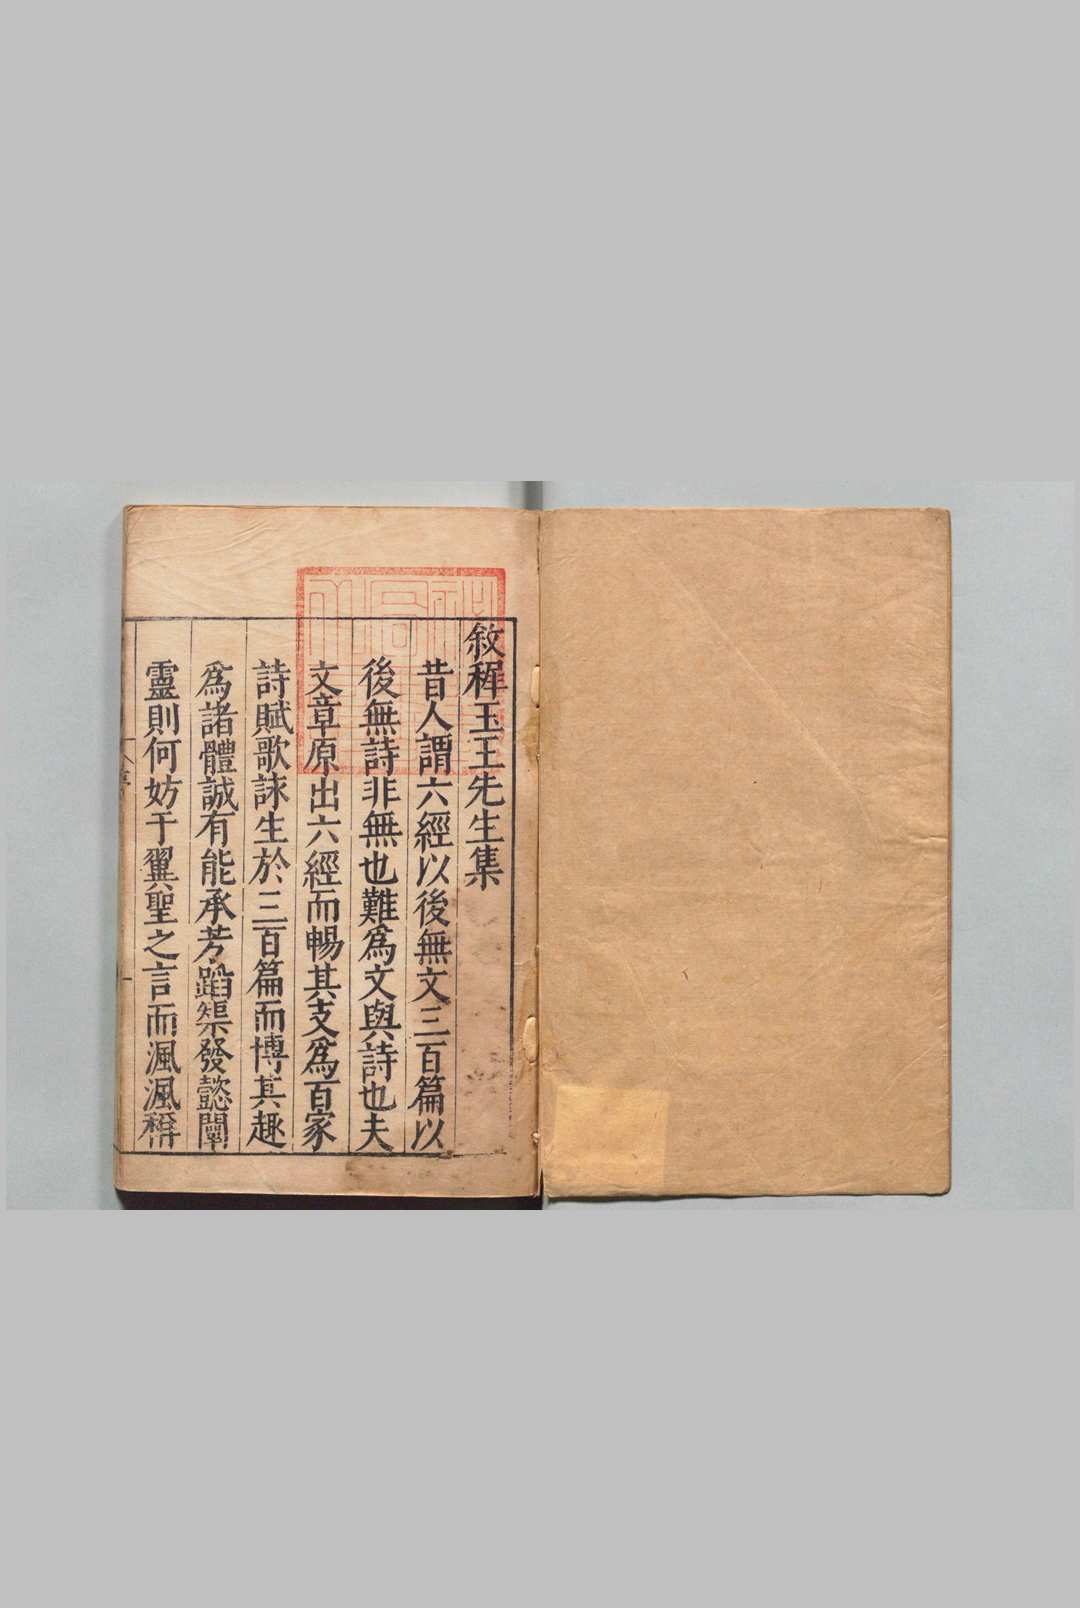 敘稺玉王先生集
昔人謂六經以後無文三百篇以
後無詩非無也難爲文與詩也夫
文章原出六經而暢其支爲百家
詩賦歌詠生於三百篇而博其趣
爲諸體誠有能承芳蹈榘發懿闡
靈則何妨于翼聖之言而渢渢稱